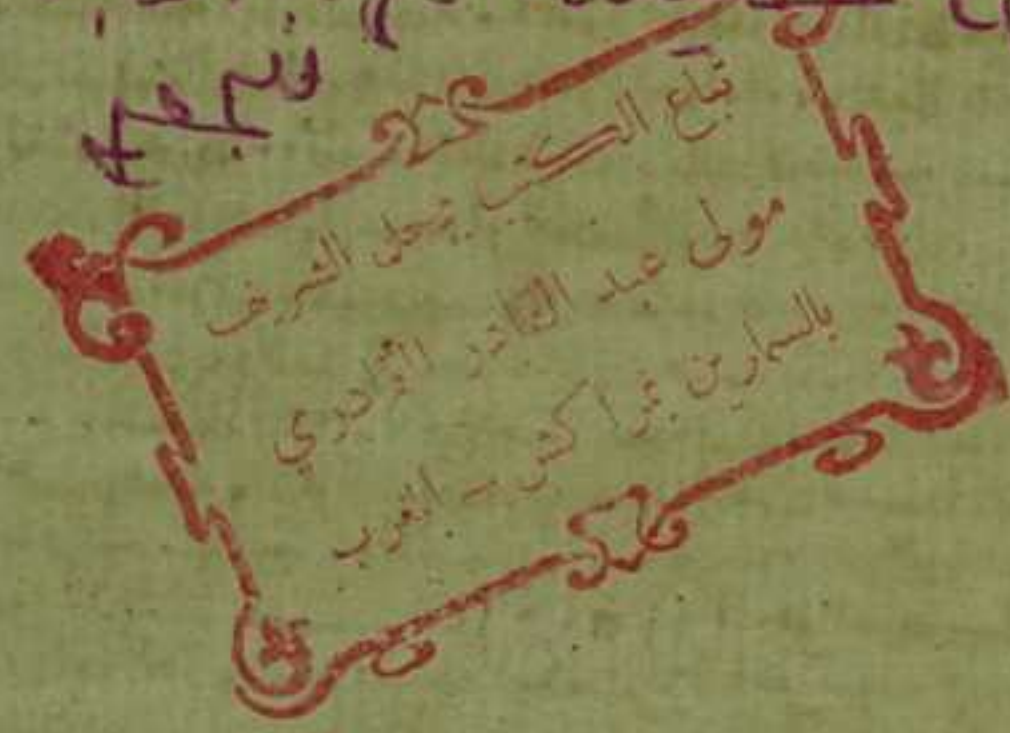 تباع الكتب بمحل الشريف
مولى عبد القادر القادري
بالسمارين بمراكش – المغرب